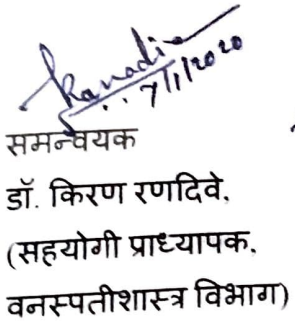 7/1/2020
समन्वयक
डॉ. किरण रणदिवे,
(सहयोगी प्राध्यापक,
वनस्पतीशास्त्र विभाग)